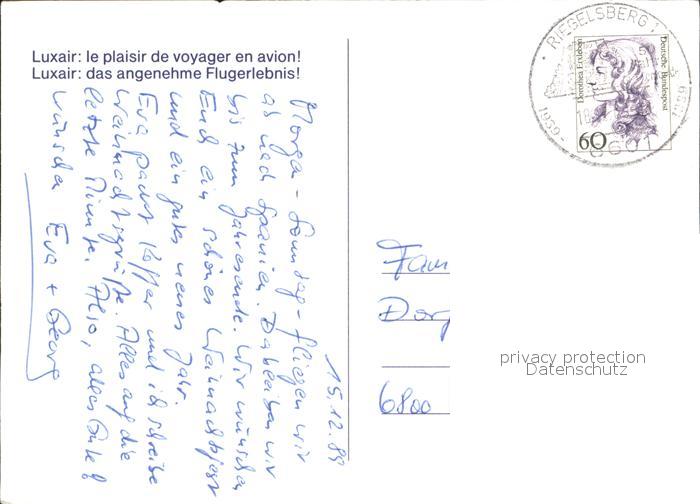 Luxair: le plaisir de voyager en avion!
Luxair: das angenehme Flugerlebnis!
15.12.89
Morgen - Sonntag - fliegen wir
ab nach Spanien. Da bleiben wir
bis zum Jahresende. Wir wünschen
Euch ein schönes Weihnachtsfest
und ein gutes neues Jahr.
Eva packt Koffer und ich schreibe
Weihnachtsgrüße. Alles auf die
letzte Minute. Also, alles Gute &
wünschen Eva + Georg
RIEGELSBERG 1
1939 - 1989
6601
Deutsche Bundespost
Dorothea Erxleben
60
Fam
Dorg
6800
privacy protection
Datenschutz